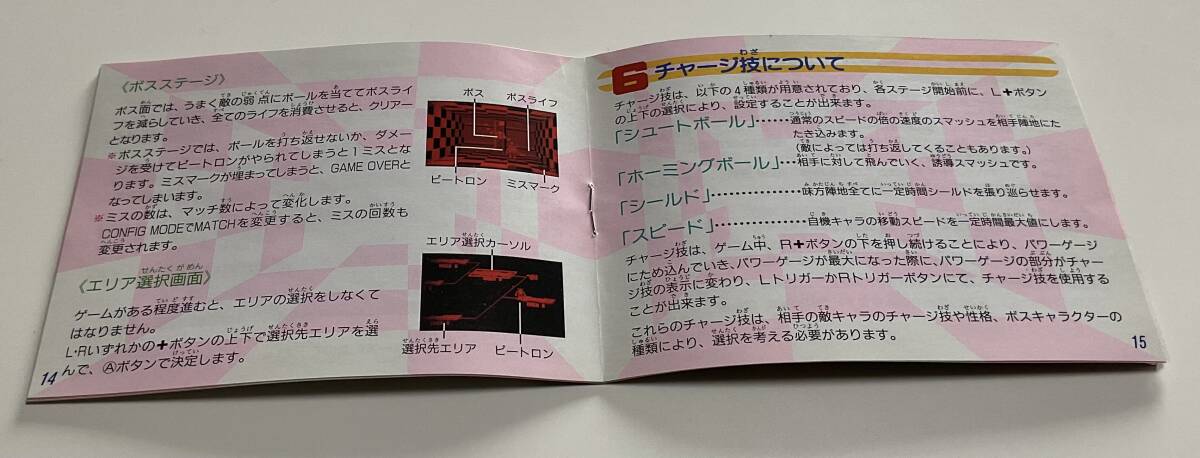 《ボスステージ》
ボス面では、うまく敵の弱点にボールを当ててボスライ
フを減らしていき、全てのライフを消費させると、クリアー
となります。
※ボスステージでは、ボールを打ち返せないか、ダメー
ジを受けてビートロンがやられてしまうと1ミスとな
ります。ミスマークが埋まってしまうと、GAME OVERと
なってしまいます。
※ミスの数は、マッチ数によって変化します。
CONFIG MODEでMATCHを変更すると、ミスの回数も
変更されます。
ボス
ボスライフ
ビートロン
ミスマーク
《エリア選択画面》
ゲームがある程度進むと、エリアの選択をしなくて
はなりません。
L・Rいずれかの✚ボタンの上下で選択先エリアを選
んで、Ⓐボタンで決定します。
エリア選択カーソル
選択先エリア
ビートロン
14
6 チャージ技について
チャージ技は、以下の4種類が用意されており、各ステージ開始前に、L✚ボタン
の上下の選択により、設定することが出来ます。
「シュートボール」……通常のスピードの倍の速度のスマッシュを相手陣地にた
たき込みます。
(敵によっては打ち返してくることもあります。)
「ホーミングボール」…相手に対して飛んでいく、誘導スマッシュです。
「シールド」……………味方陣地全てに一定時間シールドを張り巡らせます。
「スピード」……………自機キャラの移動スピードを一定時間最大値にします。
チャージ技は、ゲーム中、R✚ボタンの下を押し続けることにより、パワーゲージ
にため込んでいき、パワーゲージが最大になった際に、パワーゲージの部分がチャー
ジ技の表示に変わり、LトリガーかRトリガーボタンにて、チャージ技を使用する
ことが出来ます。
これらのチャージ技は、相手の敵キャラのチャージ技や性格、ボスキャラクターの
種類により、選択を考える必要があります。
15